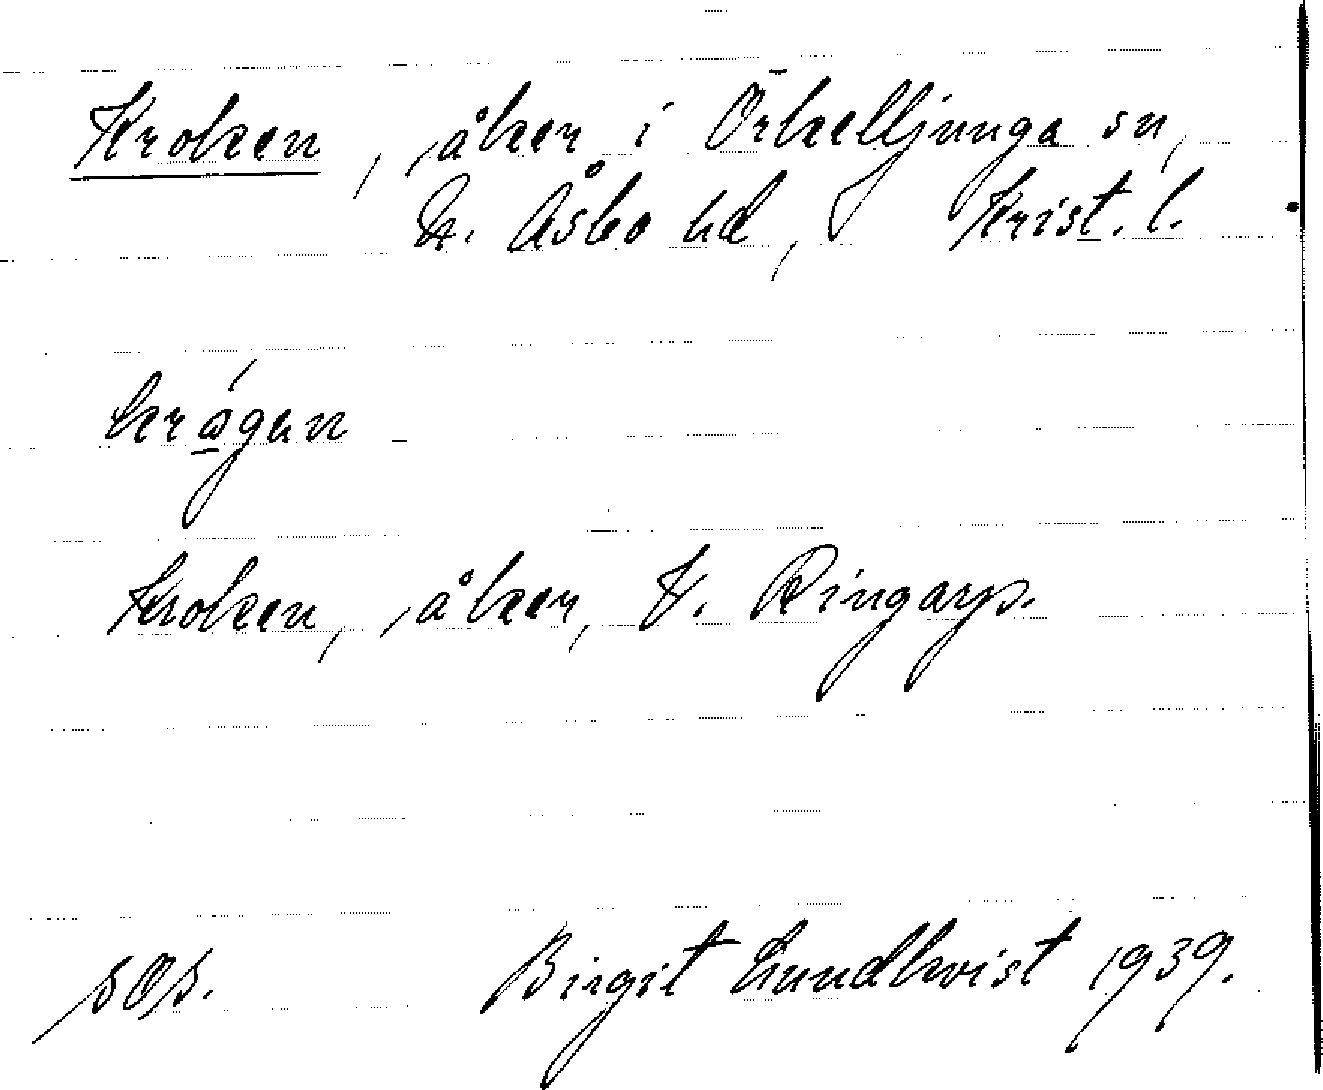 Kroken, åker i Örkelljunga sn,
N. Åsbo hd, Krist. l.
krǻgan
Kroken, åker, V. Ringarp.
sOs. Birgit Lundkvist 1939.